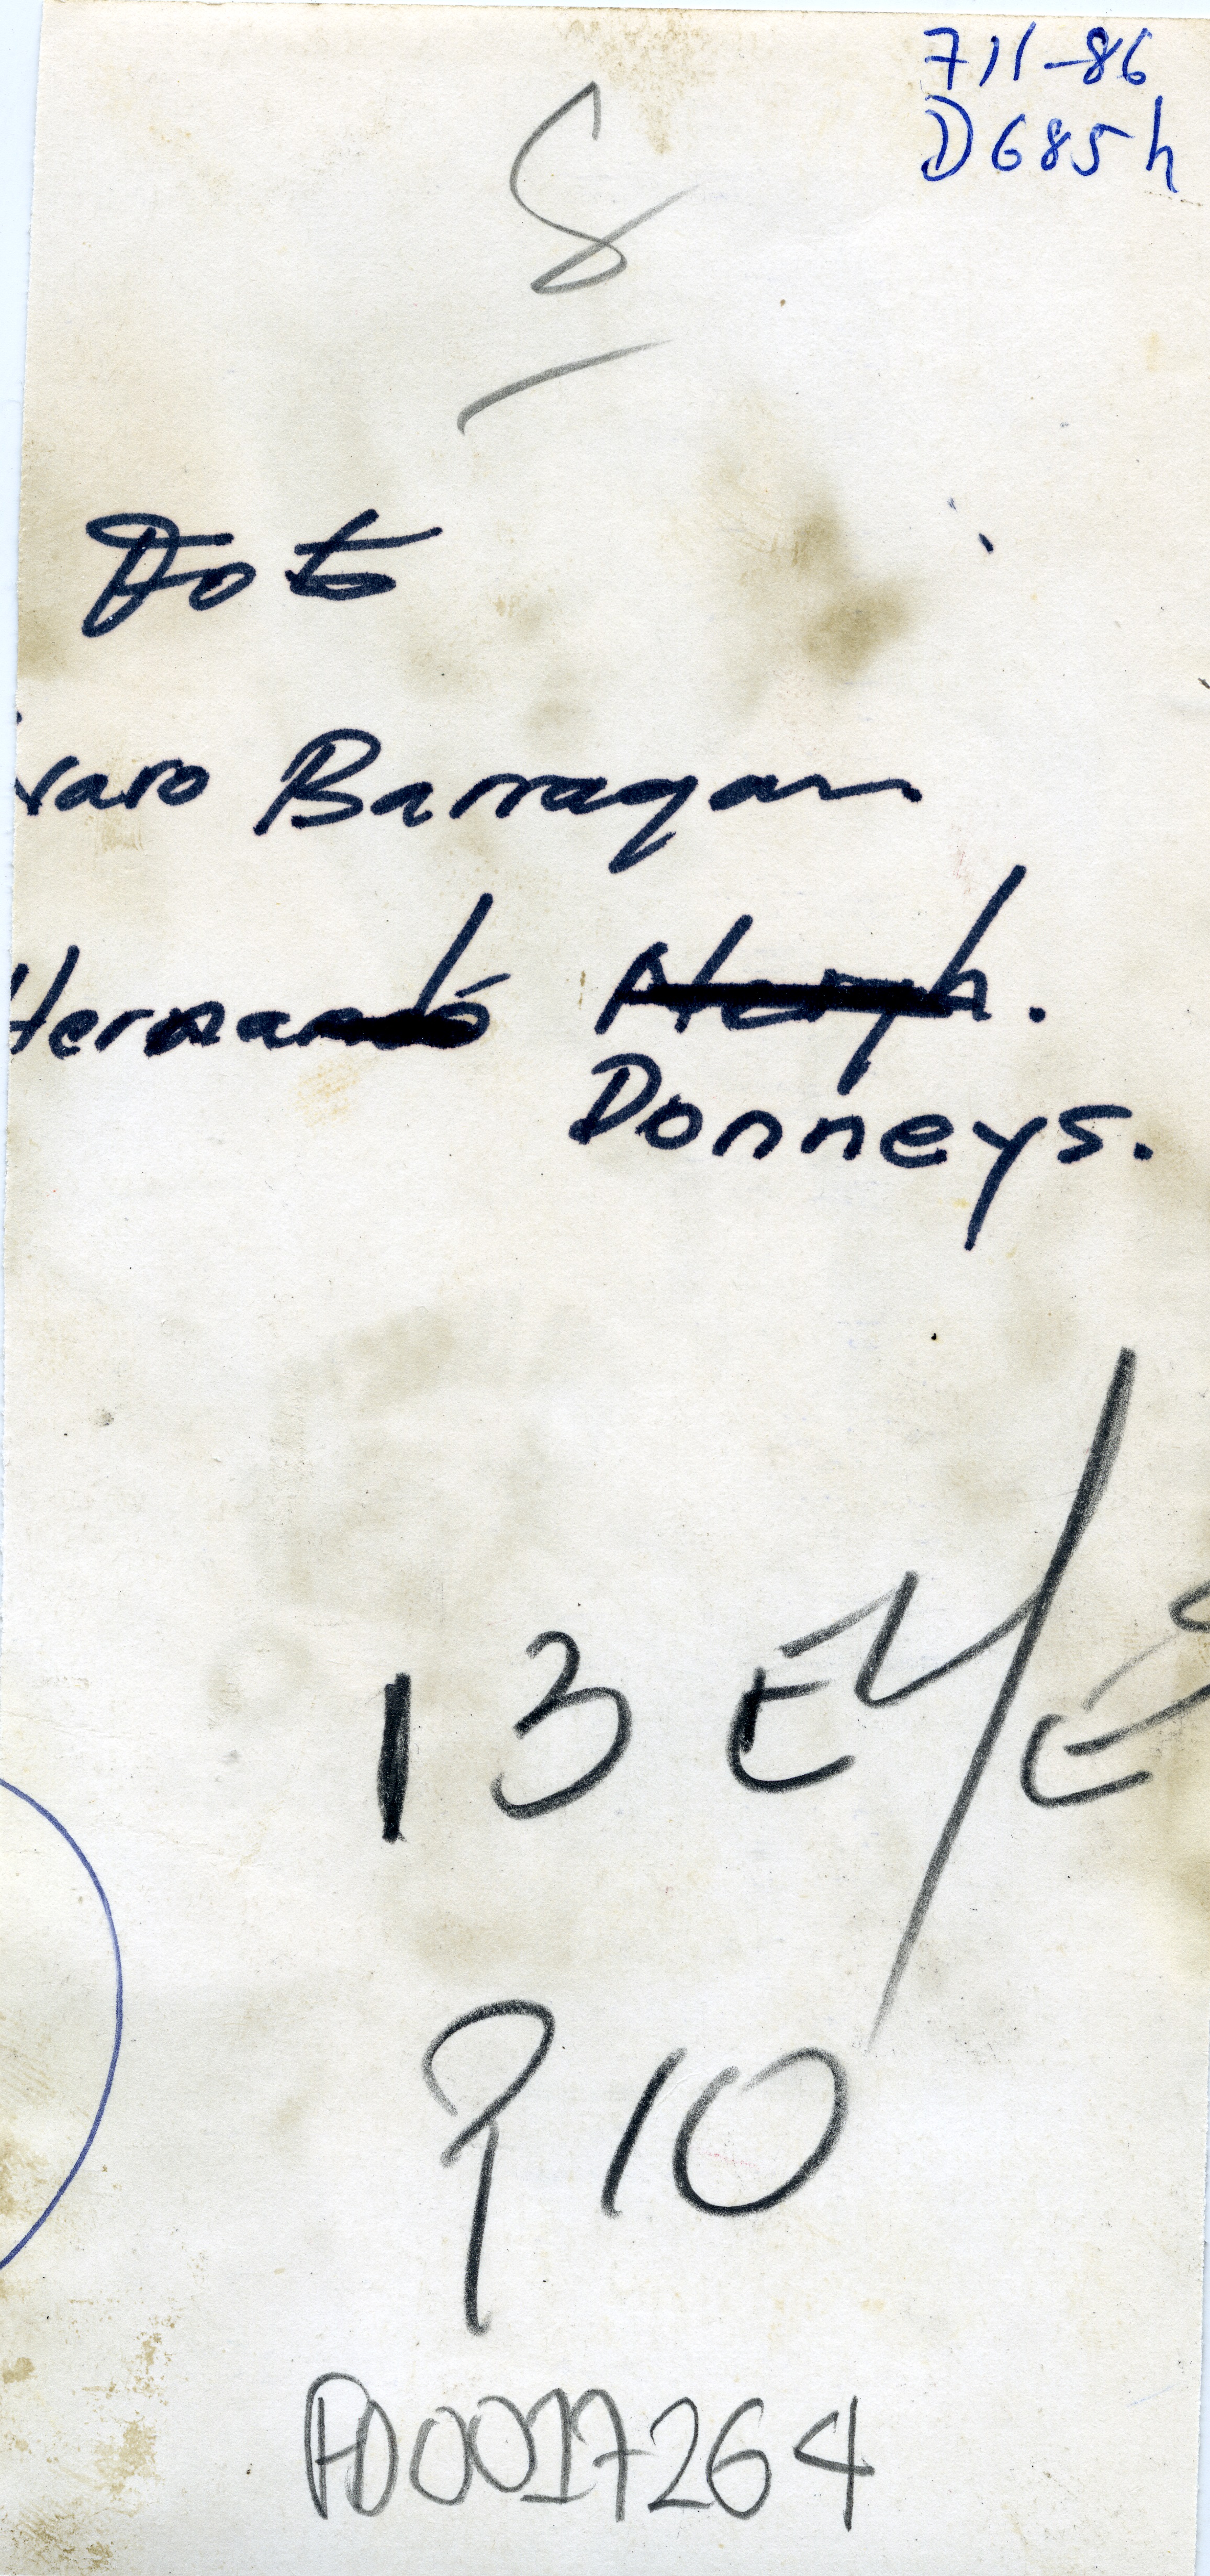 711-86
D685h
8
Foto
varo Barragan
Hernando
Donneys.
13 E
P 10
FD0017264